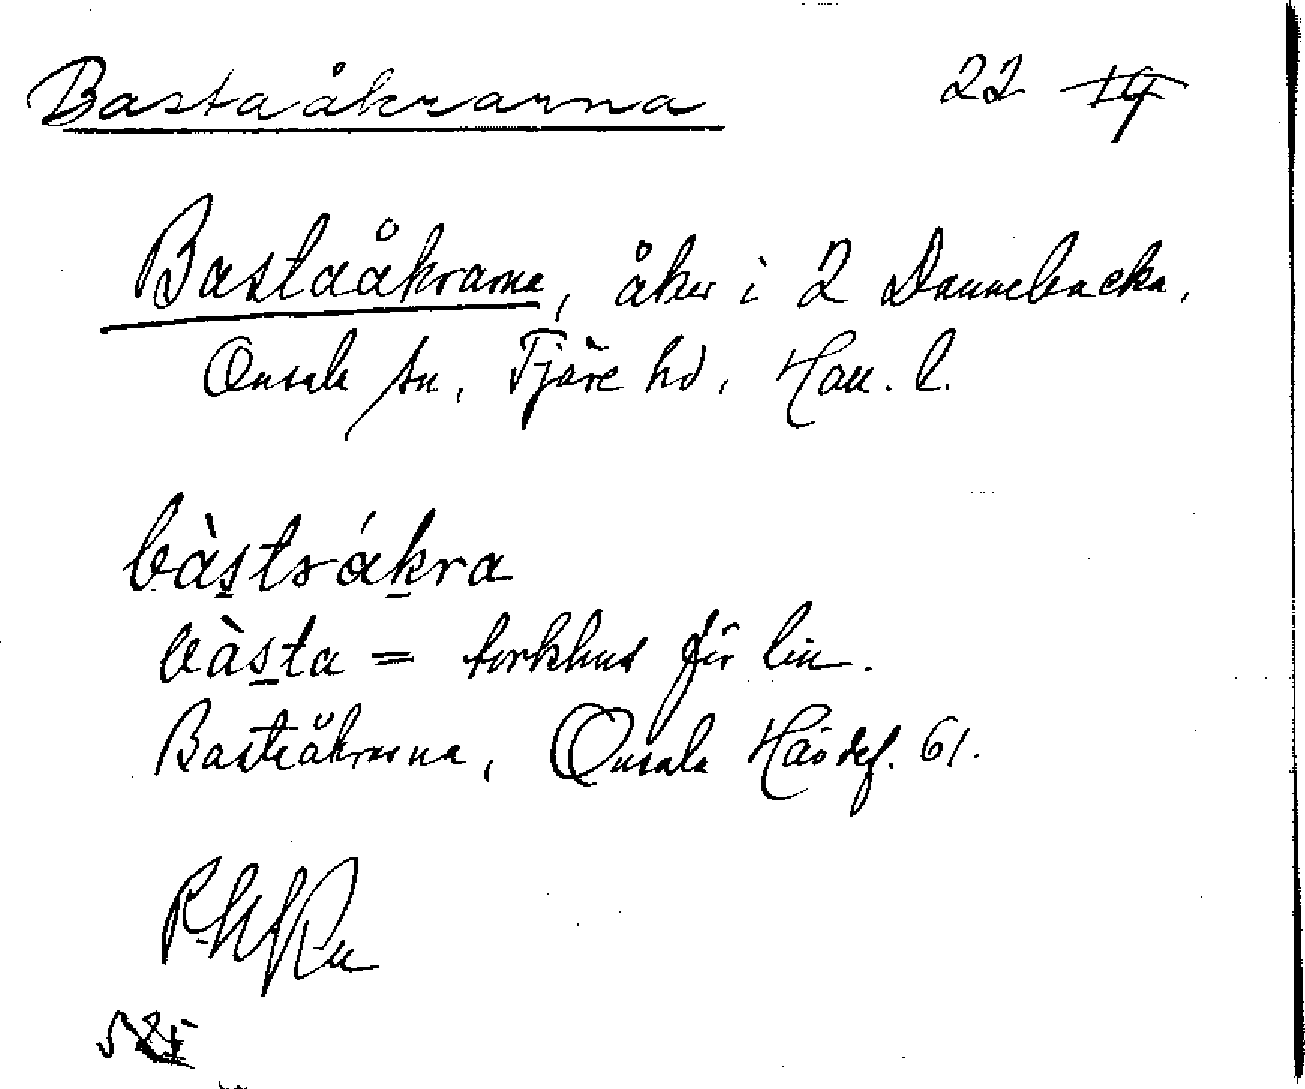 Bastaåkrarna 22 19
Bastaåkrarna, åker i 2 Dannebacka,
Onsala sn, Fjäre hd, Hall. l.
bàstråkra
bàsta = torkhus för lin.
Bastråkrarna, Onsala 61.